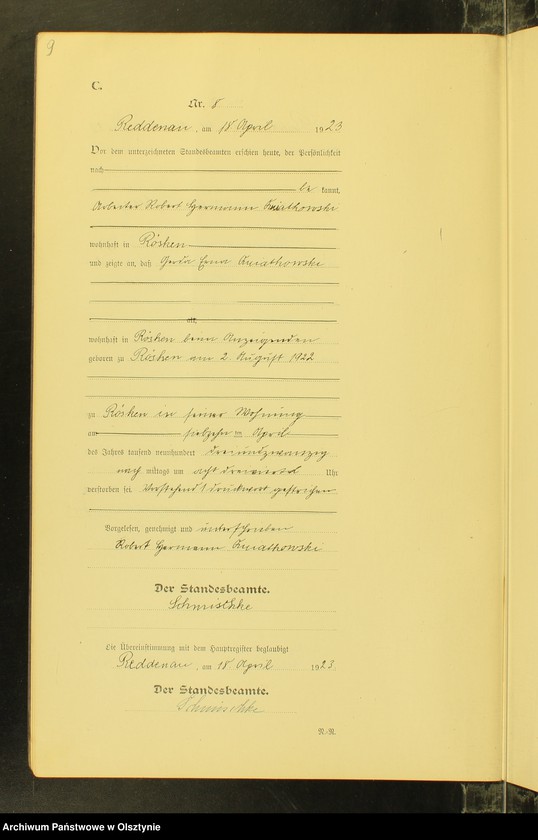 9
C.
Nr. 8
Reddenau, am 18 April 1923
Vor dem unterzeichneten Standesbeamten erschien heute, der Persönlichkeit
nach
be kannt,
Arbeiter Robert Hermann Kwiatkowski
wohnhaft in Rösken
und zeigte an, daß Gerda Erna Kwiatkowski
alt,
wohnhaft in Rösken beim Anzeigenden
geboren zu Rösken am 2. August 1922
zu Rösken in seiner Wohnung
am siebzehn ten April
des Jahres tausend neunhundert dreiundzwanzig
nach mittags um acht dreiviertel Uhr
verstorben sei. Vorstehend 1 Druckwort gestrichen
Vorgelesen, genehmigt und unterschrieben
Robert Hermann Kwiatkowski
Der Standesbeamte.
Schmischke
Die Übereinstimmung mit dem Hauptregister beglaubigt
Reddenau, am 18 April 1923.
Der Standesbeamte.
Schmischke
N.-R.
Archiwum Państwowe w Olsztynie